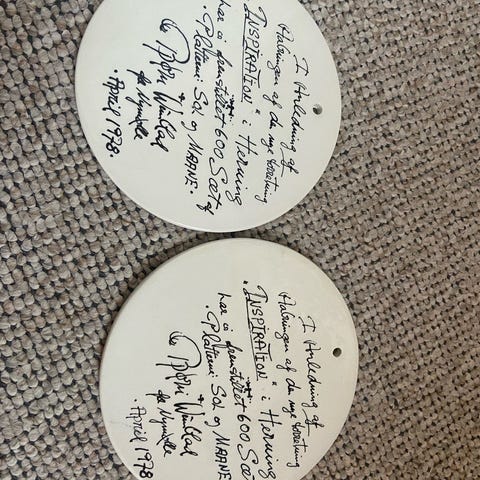 I Anledning af
Aabningen af den nye Forretning
"INSPIRATION" i Herning
har vi fremstillet 600 Sæt af
Sol og MAANE.
Bjørn Wiinblad
Nymølle
April 1978.
I Anledning af
Aabningen af den nye Forretning
"INSPIRATION" i Herning
har vi fremstillet 600 Sæt
Sol og MAANE
Bjørn Wiinblad
Nymølle
April 1978